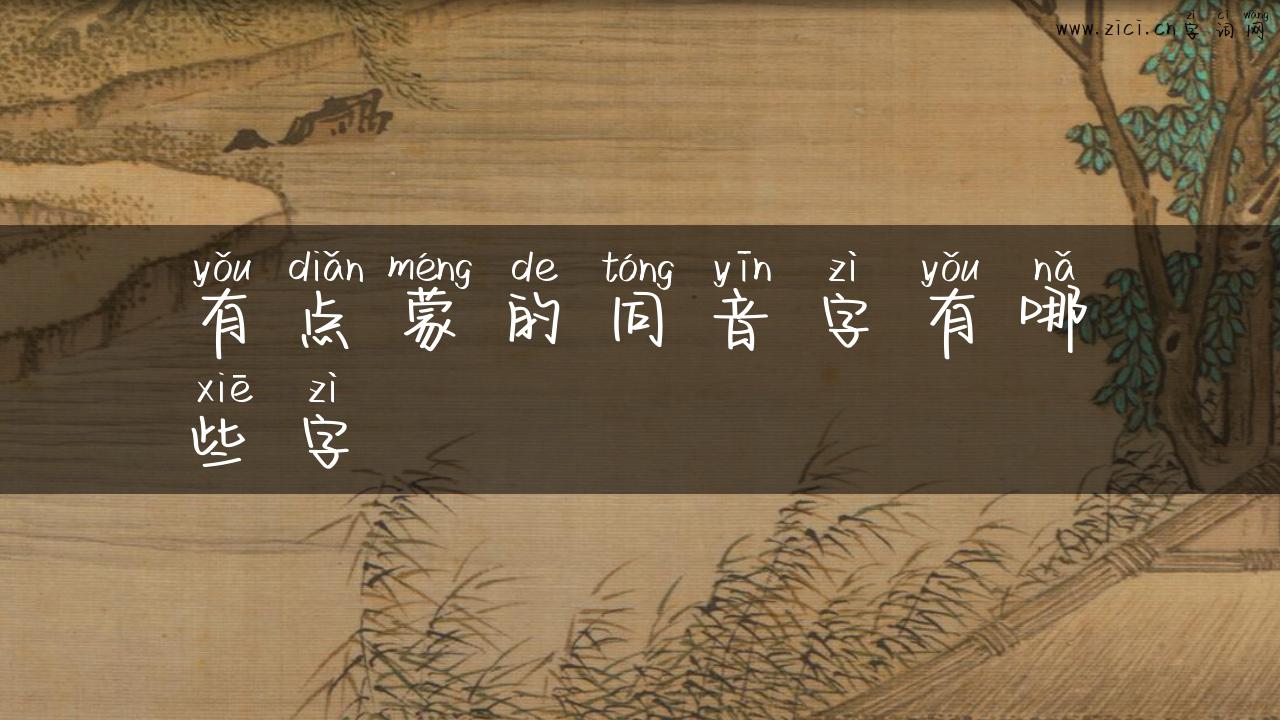 zì cí wǎng
www.zici.cn字词网
yǒu diǎn méng de tóng yīn zì yǒu nǎ
有点蒙的同音字有哪
xiē zì
些字